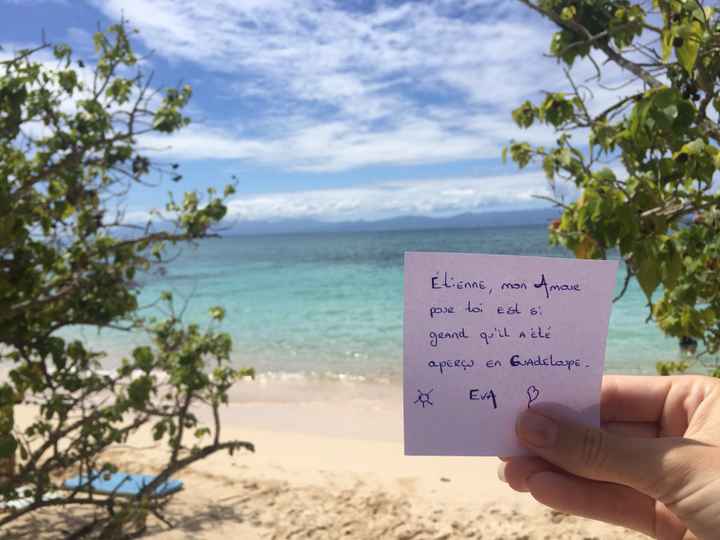 Étienne, mon Amour
pour toi est si
grand qu'il a été
aperçu en Guadeloupe.
EVA